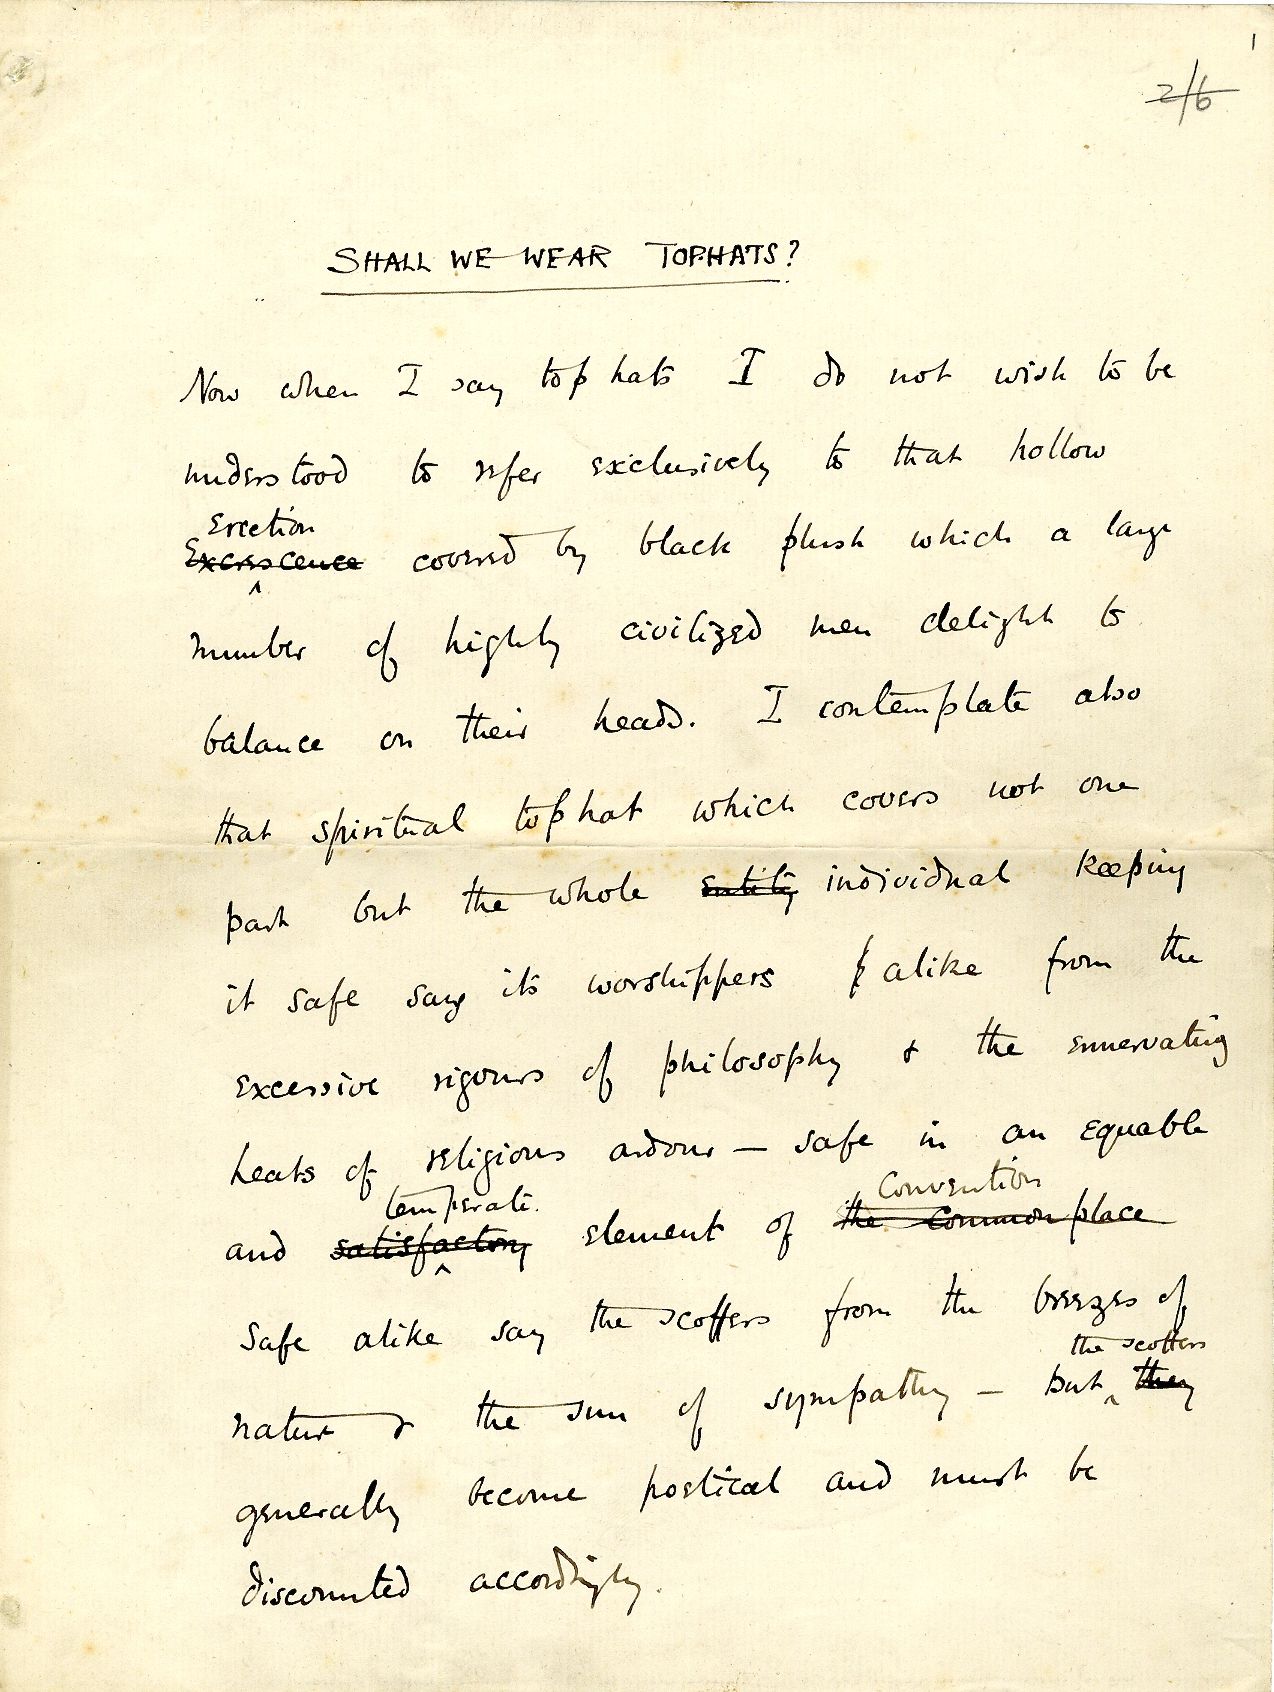 1
2/6
SHALL WE WEAR TOPHATS?
Now when I say top hats I do not wish to be
understood to refer exclusively to that hollow
Erection
Excrescence covered by black plush which a large
number of highly civilized men delight to
balance on their heads. I contemplate also
that spiritual tophat which covers not one
part but the whole entity individual keeping
it safe say its worshippers alike from the
excessive rigours of philosophy & the ennervating
heats of religious ardour — safe in an equable
temperate. Convention
and satisfactory element of the commonplace
safe alike say the scoffers from the breezes of
the scoffers
nature & the sun of sympathy — but they
generally become poetical and must be
discounted accordingly.